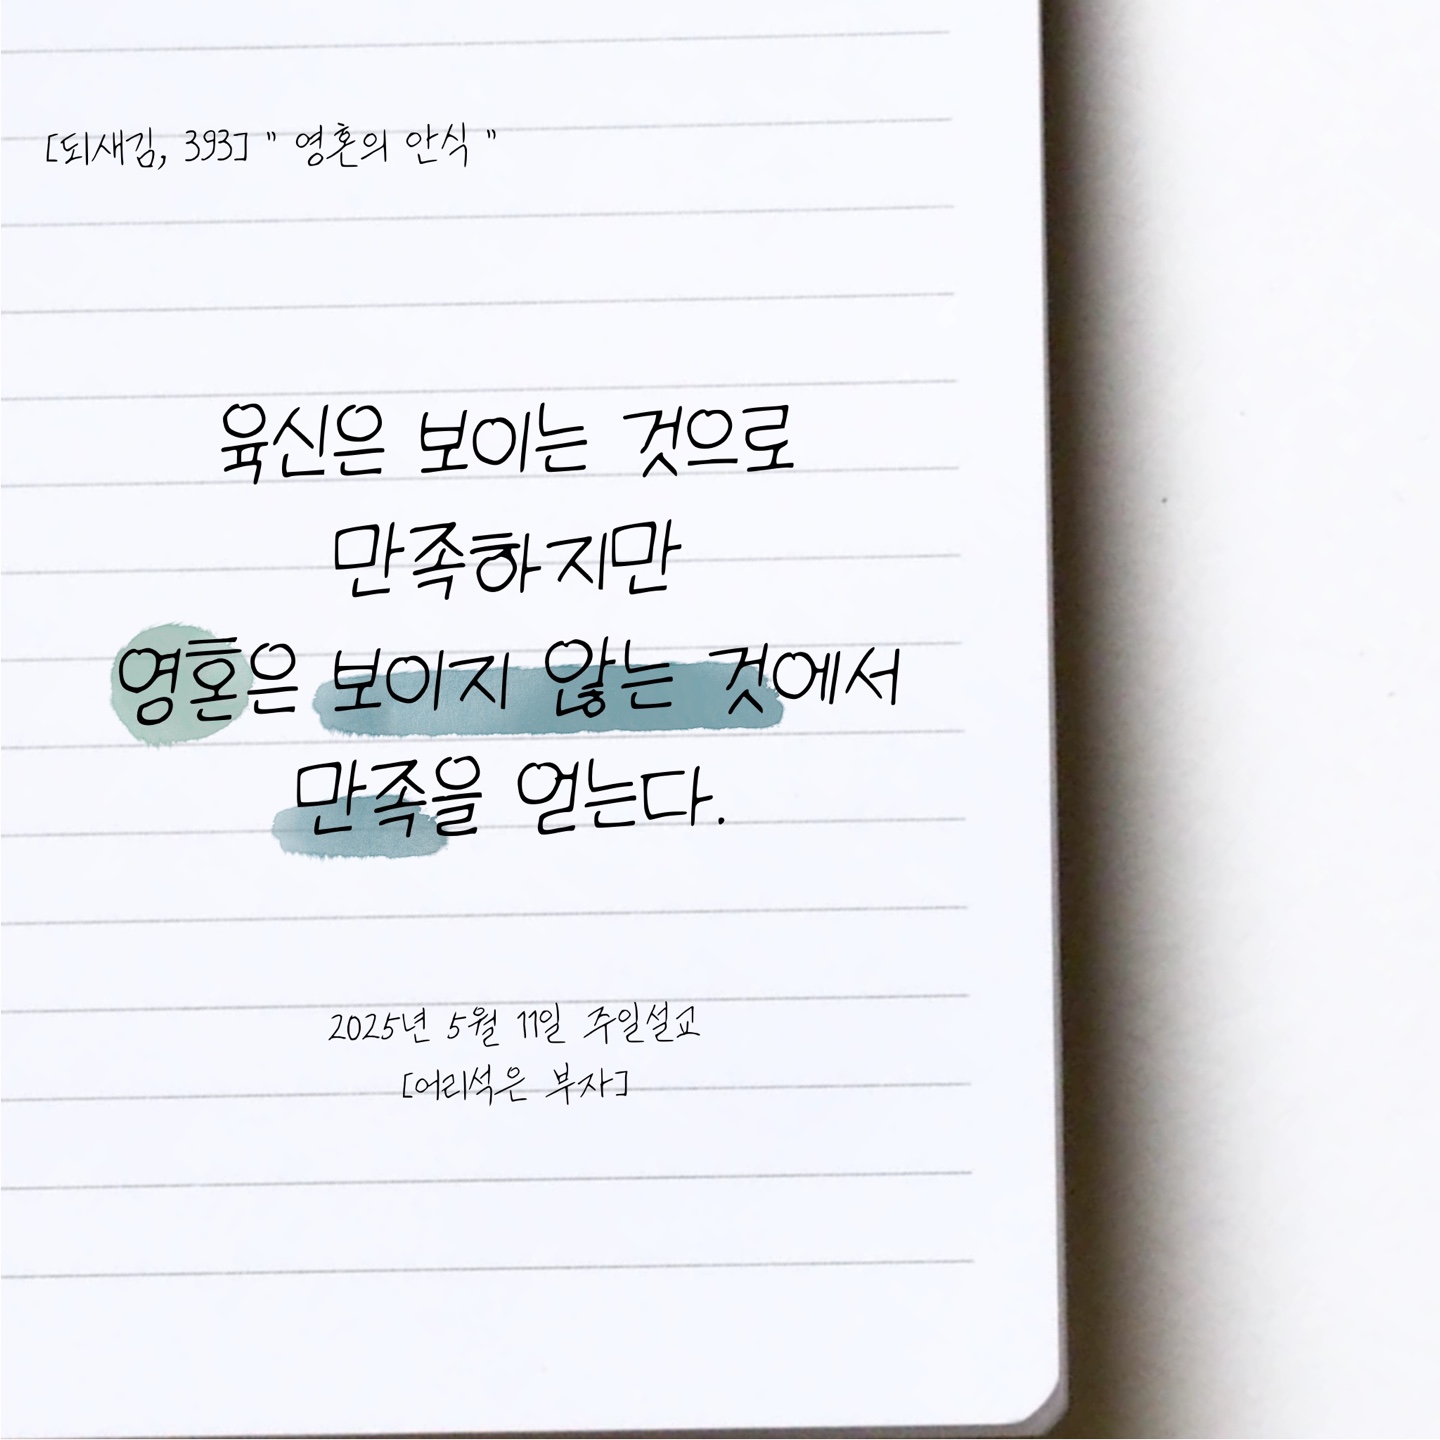 [되새김, 393] " 영혼의 안식 "
육신은 보이는 것으로
만족하지만
영혼은 보이지 않는 것에서
만족을 얻는다.
2025년 5월 11일 주일설교
[어리석은 부자]